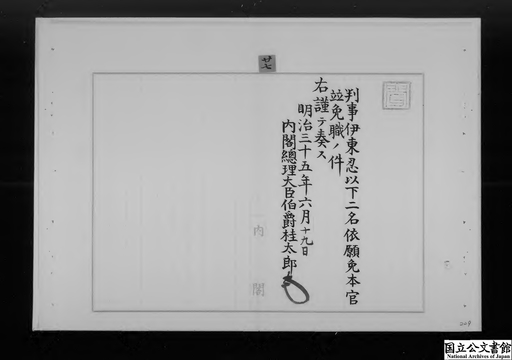 廿七
判事伊東忍以下二名依願免本官
並免職ノ件
右謹テ奏ス
明治三十五年六月十九日
内閣總理大臣伯爵桂太郎
内閣
国立公文書館
National Archives of Japan